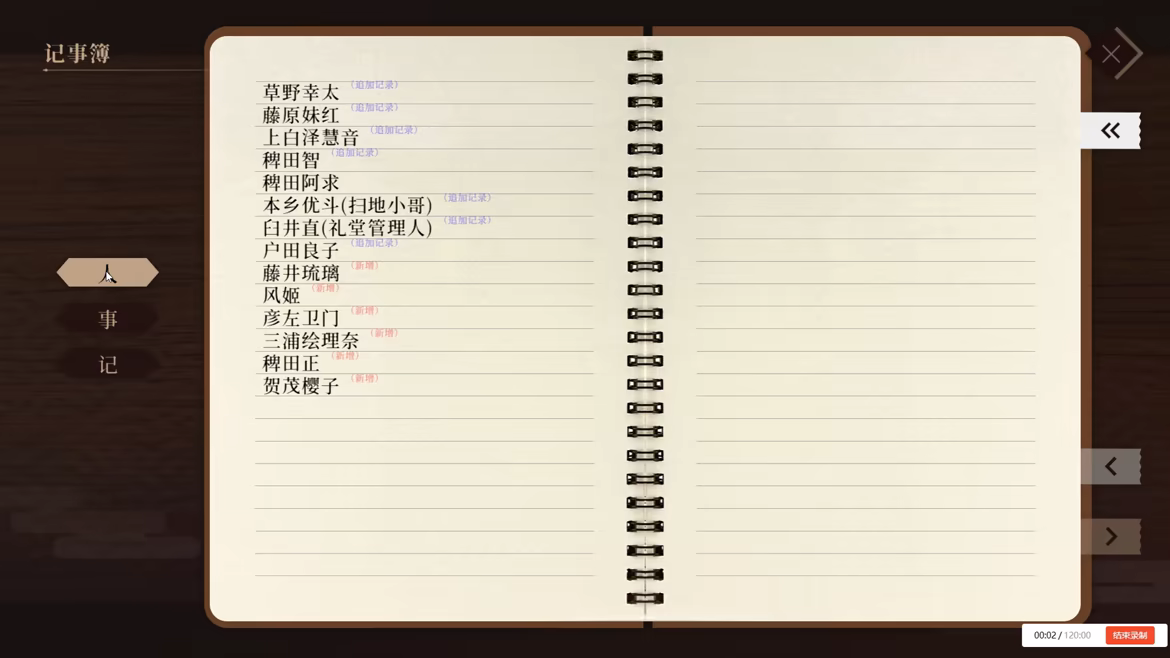 记事簿
草野幸太 (追加记录)
藤原妹红 (追加记录)
上白泽慧音 (追加记录)
稗田智 (追加记录)
稗田阿求
本乡优斗(扫地小哥) (追加记录)
臼井直(礼堂管理人) (追加记录)
户田良子 (追加记录)
藤井琉璃 (新增)
风姬 (新增)
彦左卫门 (新增)
三浦绘理奈 (新增)
稗田正 (新增)
贺茂樱子 (新增)
人
事
记
00:02 / 120:00 结束录制